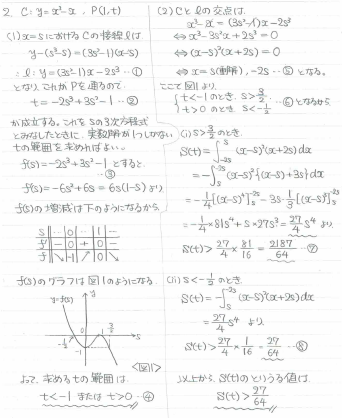 2. C: y=x³-x , P(1,t)
(1) x=s におけるCの接線 l は
y-(s³-s)=(3s²-1)(x-s)
∴ l: y=(3s²-1)x-2s³ …①
となり,これがPを通るので
t=-2s³+3s²-1 …②
が成立する。これをsの3次方程式
とみなしたときに, 実数解が1つしかない
tの範囲を求めればよい。
f(s)=-2s³+3s²-1 とすると
…③
f'(s)=-6s²+6s=6s(1-s) より
f(s)の増減は下のようになるから
s … 0 … 1 …
f' - 0 + 0 -
f ↘ -1 ↗ 0 ↘
f(s)のグラフは図1のようになる.
y=f(s) y
-1/2 1 3/2 s
-1
<図1>
よって, 求めるtの範囲は
t<-1 または t>0 …④
(2) Cとlの交点は
x³-x=(3s²-1)x-2s³
⇔ x³-3s²x+2s³=0
⇔ (x-s)²(x+2s)=0
⇔ x=s(重解), -2s …⑤ となる。
ここで図1より,
{ t<-1のとき, s>3/2
t>0のとき, s<-1/2 …⑥ となるから
(i) s>3/2 のとき
S(t)=∫_{-2s}^{s} (x-s)²(x+2s)dx
=-∫_{s}^{-2s} (x-s)²{(x-s)+3s}dx
=-1/4[(x-s)⁴]_{s}^{-2s}-3s・1/3[(x-s)³]_{s}^{-2s}
=-1/4×81s⁴+s×27s³=27/4 s⁴ より
S(t)>27/4×81/16=2187/64 …⑦
(ii) s<-1/2 のとき
S(t)=-∫_{s}^{-2s} (x-s)²(x+2s)dx
=27/4 s⁴ より
S(t)>27/4×1/16=27/64 …⑧
以上から, S(t)のとりうる値は
S(t)>27/64